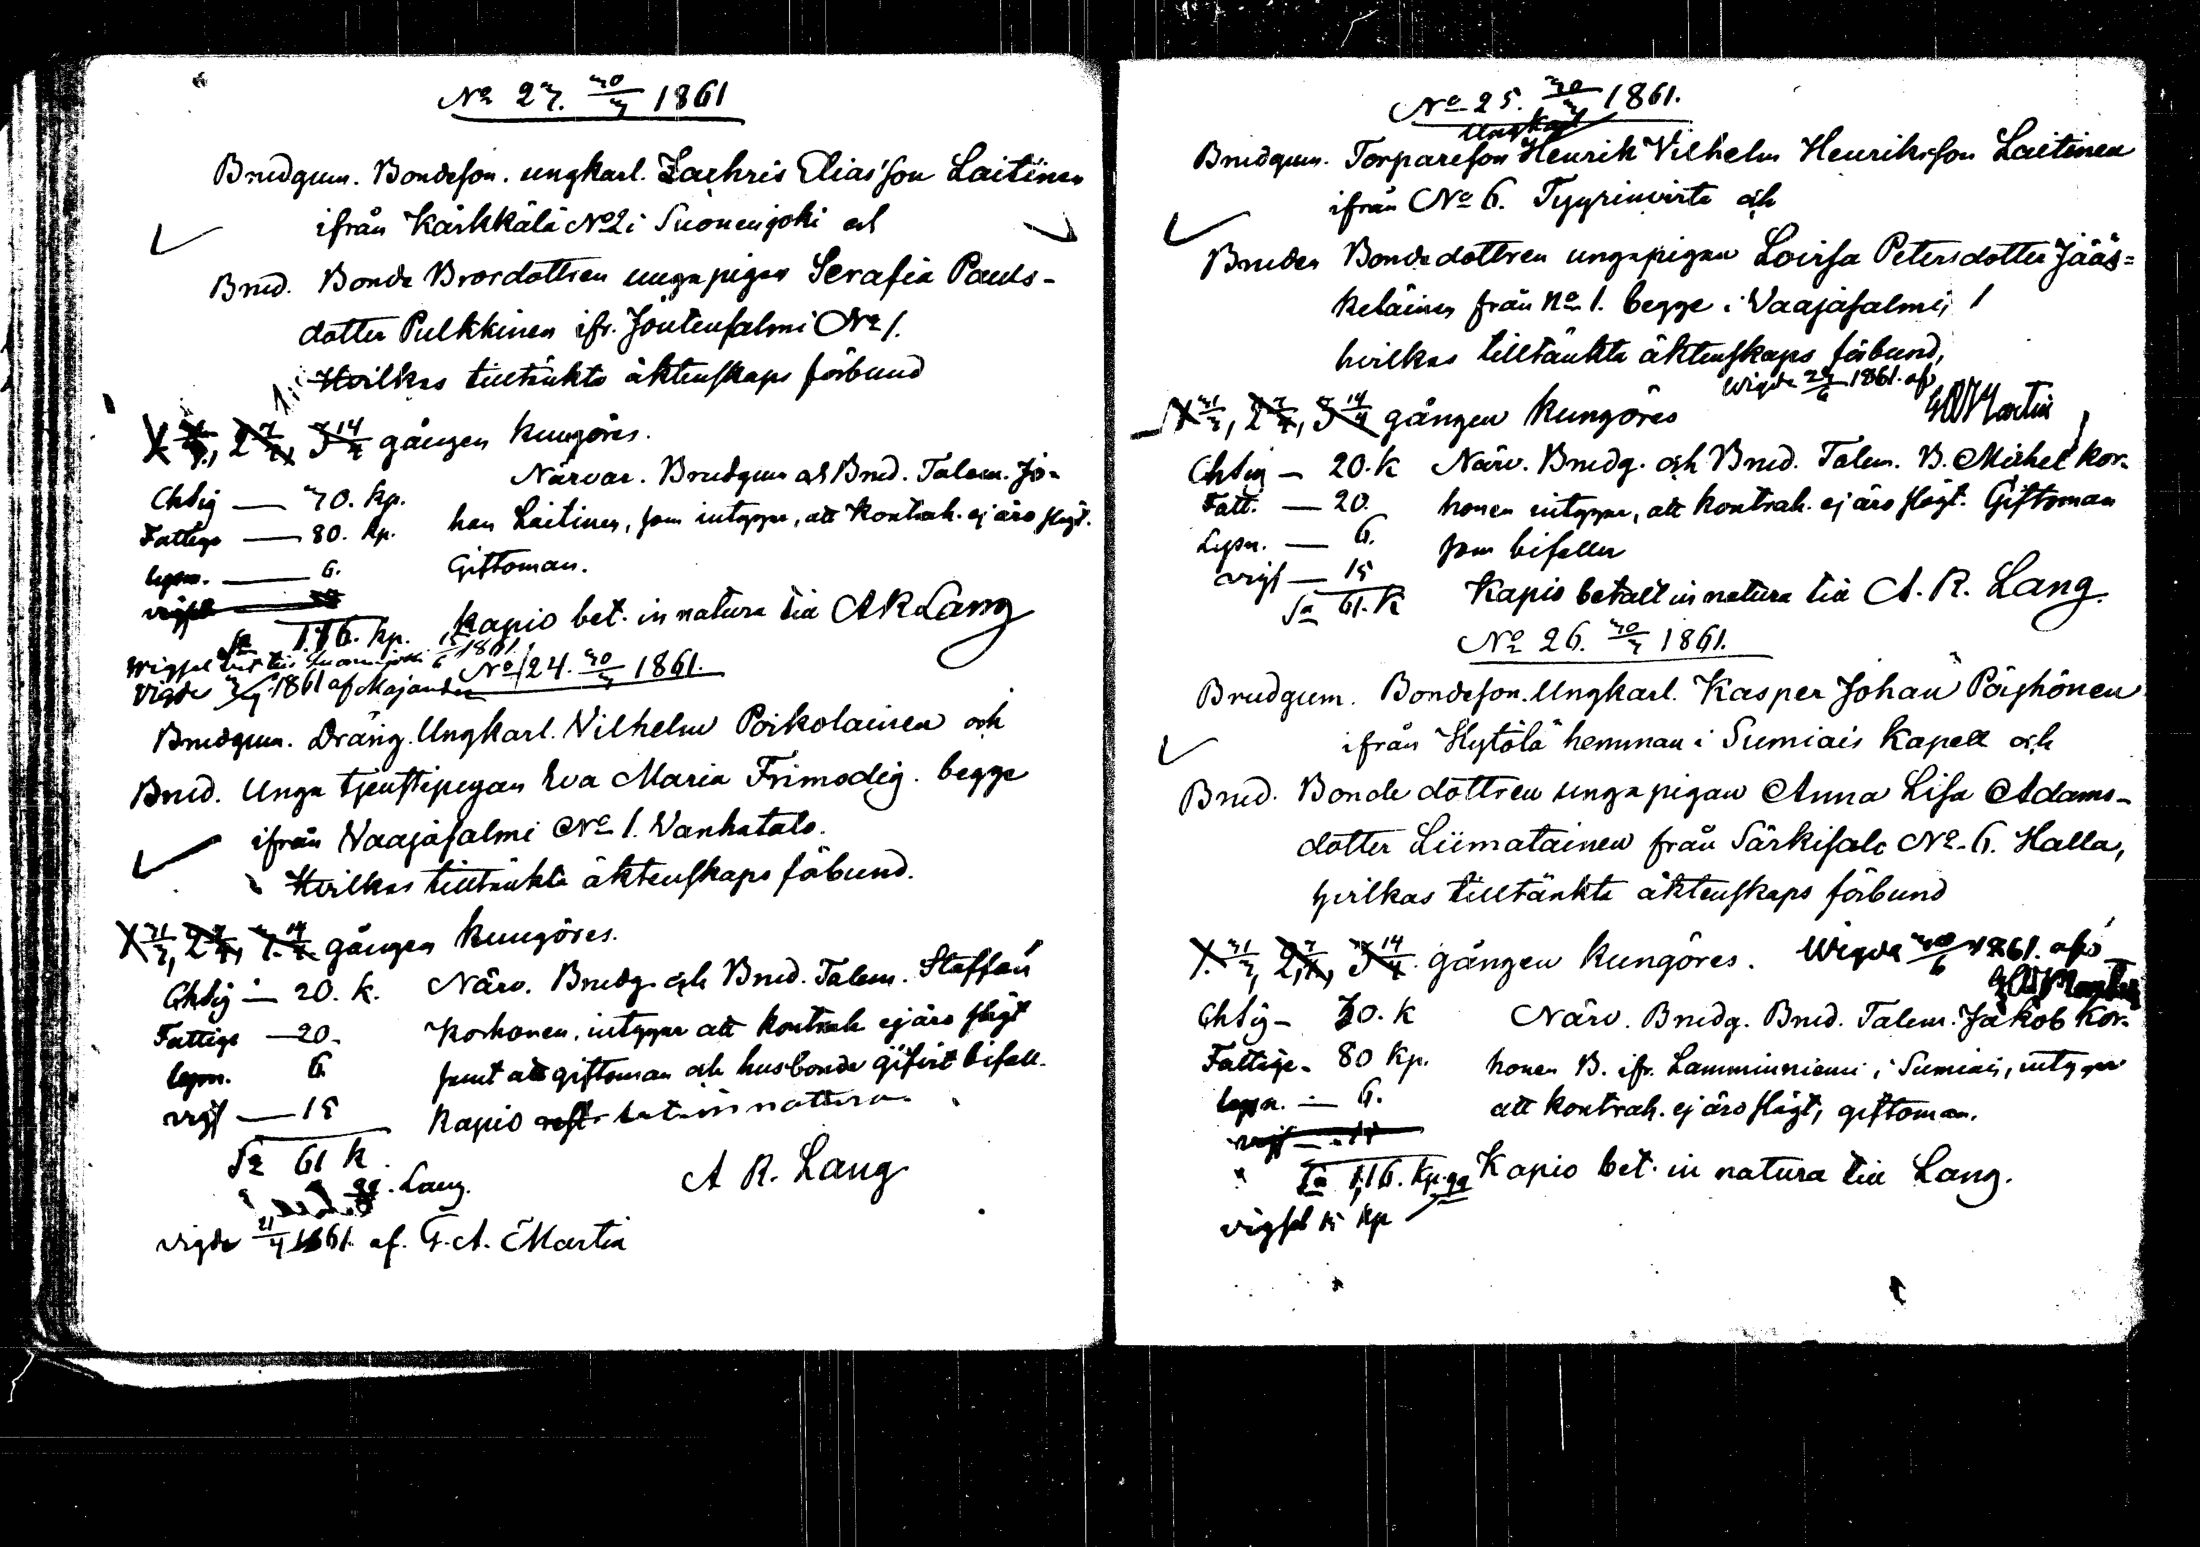 No 23. 30/3 1861
Brudgum. Bondeson. ungkarl. Zachris Elias'son Laitinen
ifrån Kärkkälä No 2 i Suonenjoki och
Brud. Bonde Brordottren unga pigan Serafia Pauls-
dotter Pulkkinen ifr. Joutensalmi No 1.
Hvilkas tilltänkta äktenskaps förbund
2 7/4, 3 14/4 gången kungöres.
Närvar. Brudgum och Brud. Talem. Jo-
han Laitinen, som intygar, att kontrah. ej äro slägt.
Giftoman.
Chtig — 30. kp.
Fattige — 80. kp.
lysn. — 6.
Sa 1.16. kp.
Kapio bet. in natura till A R Lang
Vigde 1861 af Majander
No 24. 30/3 1861.
Brudgum. Dräng. Ungkarl. Vilhelm Poikolainen och
Brud. Unga tjenstepigan Eva Maria Frimodig. begge
ifrån Vaajasalmi No 1. Vanhatalo.
Hvilkas tilltänkta äktenskaps förbund.
1 31/3, 2 7/4, 3 14/4 gången kungöres.
Chtig — 20. k.
Fattige — 20.
lysn. 6.
vigs — 15
Sa 61 k.
Närv. Brudg. och Brud. Talem. Staffan
Korhonen. intygar att kontrah ej äro slägt
samt att giftoman och husbonde gifvit bifall.
Kapio bet. in natura
A R. Lang
Lang.
vigde 21/4 1861. af. G. A. Martin
No 25. 30/3 1861.
Ungkarl
Brudgum. Torpareson Henrik Vilhelm Henriksson Laitinen
ifrån No 6. Tyyrinvirta och
Bruden Bondedottren unga pigan Lovisa Petersdotter Jääs=
keläinen från No 1. begge i Vaajasalmi,
hvilkas tilltänkta äktenskaps förbund,
1 31/3, 2 7/4, 3 14/4 gången kungöres
Vigde 24/6 1861. af
Martin
Chtig — 20. K
Fatt. — 20.
Lysn. — 6.
vigs — 15
Sa 61. K
Närv. Brudg. och Brud. Talem. B. Michel Kor-
honen intygar, att kontrah. ej äro slägt. Giftoman
som bifaller
Kapio betalt in natura till A. R. Lang.
No 26. 30/3 1861.
Brudgum. Bondeson. Ungkarl. Kasper Johan Pöyhönen
ifrån Hytölä hemman i Sumiais Kapell och
Brud. Bonde dottren unga pigan Anna Lisa Adams-
dotter Liimatainen från Särkisalo No. 6. Halla,
hvilkas tilltänkta äktenskaps förbund
1. 31/3, 2 7/4, 3 14/4. gången kungöres.
Vigde 30/6 1861. af
Martin
Chtig — 30. K
Fattige. 80 Kp.
lysn. — 6.
Sa 1,16. Kp.
vigsel 15 Kp
Närv. Brudg. Brud. Talem. Jakob Kor-
honen B. ifr. Lamminniemi i Sumiais, intygar
att kontrah. ej äro slägt, giftoman.
Kapio bet. in natura till Lang.